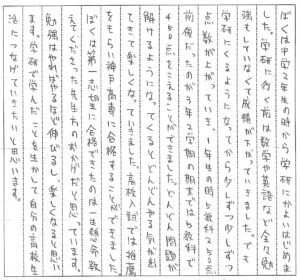 ぼくは中学2年生の時から学研にかよいはじめま
した。学研に行く前は数学や英語など余り勉
強もしていなくて成績が下がっていきました。でも
学研にくるようになってから少しずつ少しず
つ点数が上がっていき1年生の時5教科で250点
前後だったのが3年2学期の期末では5教科で
450点をこえることができました。どんどん問題が
解けるようになってくるとどんどんやる気が出
てきて楽しくなっていきました。高校入試では推薦
をもらい神戸高専に合格することができました。
ぼくは第一志望に合格できたのは一生懸命教
えてくださった先生方のおかげだと思っています。
勉強はやればやるほど伸びるし、楽しくなると思い
ます。学研で学んだことを生かして自分の高校生
活につなげていきたいと思います。